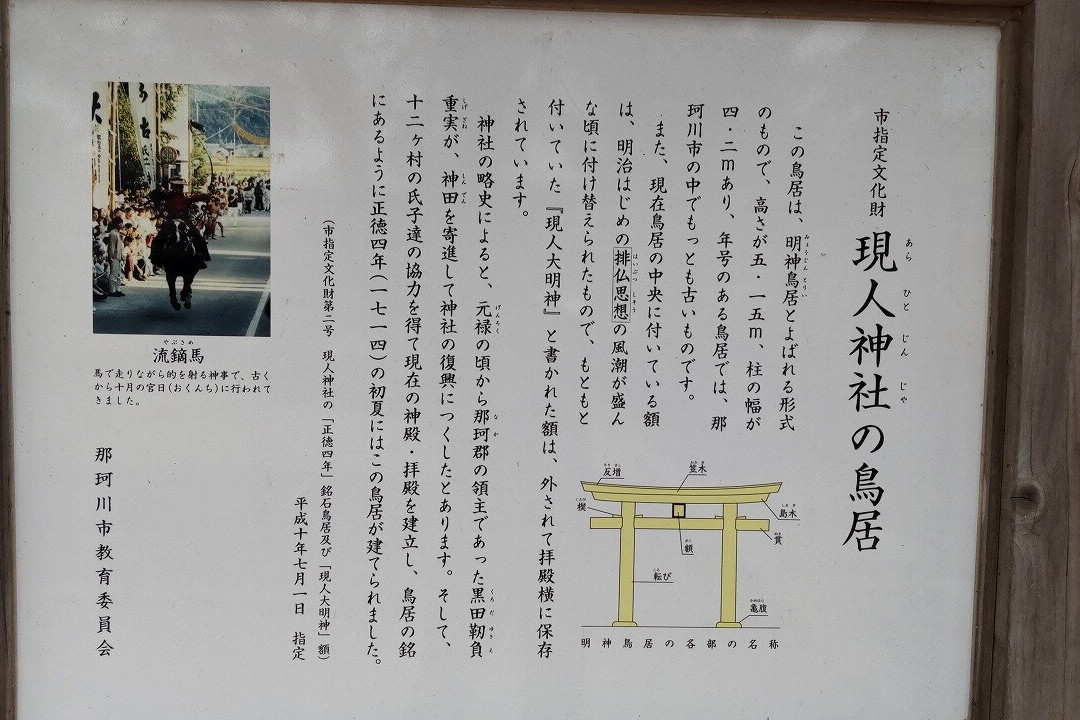 市指定文化財
現人神社の鳥居
あら ひと じん じゃ
この鳥居は、明神鳥居とよばれる形式
みょうじんとりい
のもので、高さが五・一五m、柱の幅が
四・二mあり、年号のある鳥居では、那
珂川市の中でもっとも古いものです。
また、現在鳥居の中央に付いている額
は、明治はじめの排仏思想の風潮が盛ん
はいぶつしそう
な頃に付け替えられたもので、もともと
付いていた『現人大明神』と書かれた額は、外されて拝殿横に保存
されています。
神社の略史によると、元禄の頃から那珂郡の領主であった黒田靭負
げんろく なか くろだゆきえ
重実が、神田を寄進して神社の復興につくしたとあります。そして、
しげざね しんでん
十二ヶ村の氏子達の協力を得て現在の神殿・拝殿を建立し、鳥居の銘
にあるように正徳四年(一七一四)の初夏にはこの鳥居が建てられました。
(市指定文化財第二号 現人神社の「正徳四年」銘石鳥居及び「現人大明神」額)
平成十年七月一日 指定
那珂川市教育委員会
やぶさめ
流鏑馬
馬で走りながら的を射る神事で、古く
から十月の宮日(おくんち)に行われて
きました。
反増
笠木
かさぎ
島木
しまぎ
楔
くさび
貫
ぬき
額
がく
転び
ころ
亀腹
かめはら
明神鳥居の各部の名称